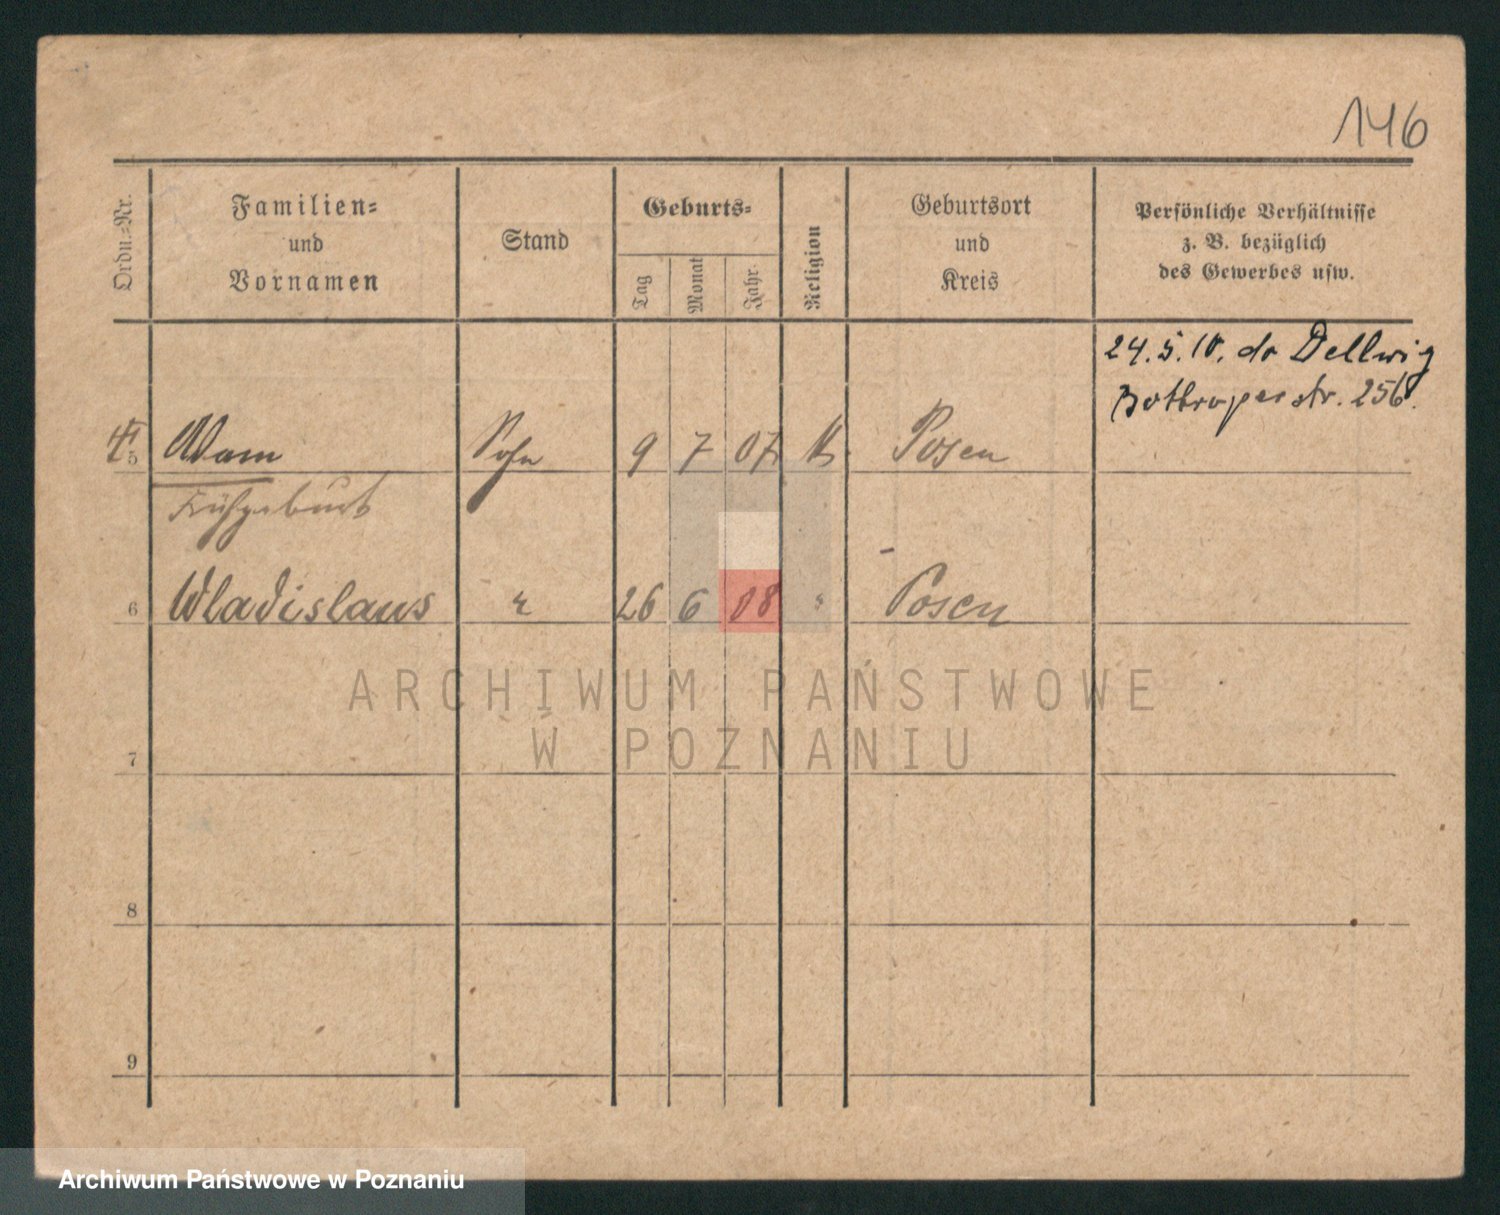 146
Ordn.=Nr.
Familien=
und
Vornamen
Stand
Geburts=
Tag
Monat
Jahr.
Religion
Geburtsort
und
Kreis
Persönliche Verhältnisse
z. B. bezüglich
des Gewerbes usw.
24. 5. 10. do Dellwig
str. 256.
5 Adam Sohn 9 7 07 k. Posen
Frühgeburt
6 Wladislaus " 26 6 08 " Posen
7
8
9
ARCHIWUM PAŃSTWOWE
W POZNANIU
Archiwum Państwowe w Poznaniu